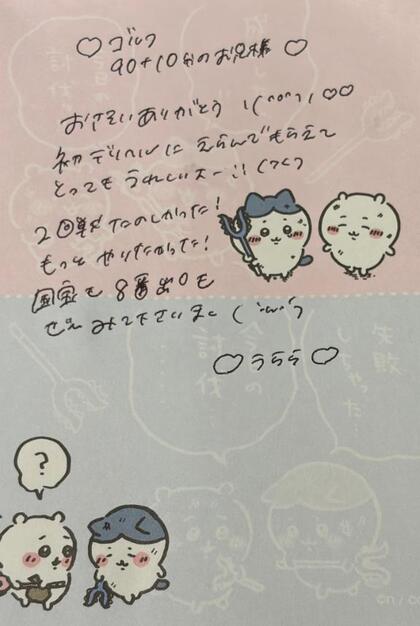 ♡ゴルフ
90+10分のお兄様 ♡
おさそいありがとう ١(^o^)١ ♡♡
初デリヘルに えらんでもらえて
とっても うれしいスー!!
2回戦たのしかった!
もっと やりたかった!
国宝も 8番出口も
ぜひ みて下さいまし
♡うらら♡
?
討伐
今日の
討伐
失敗
しちゃった…